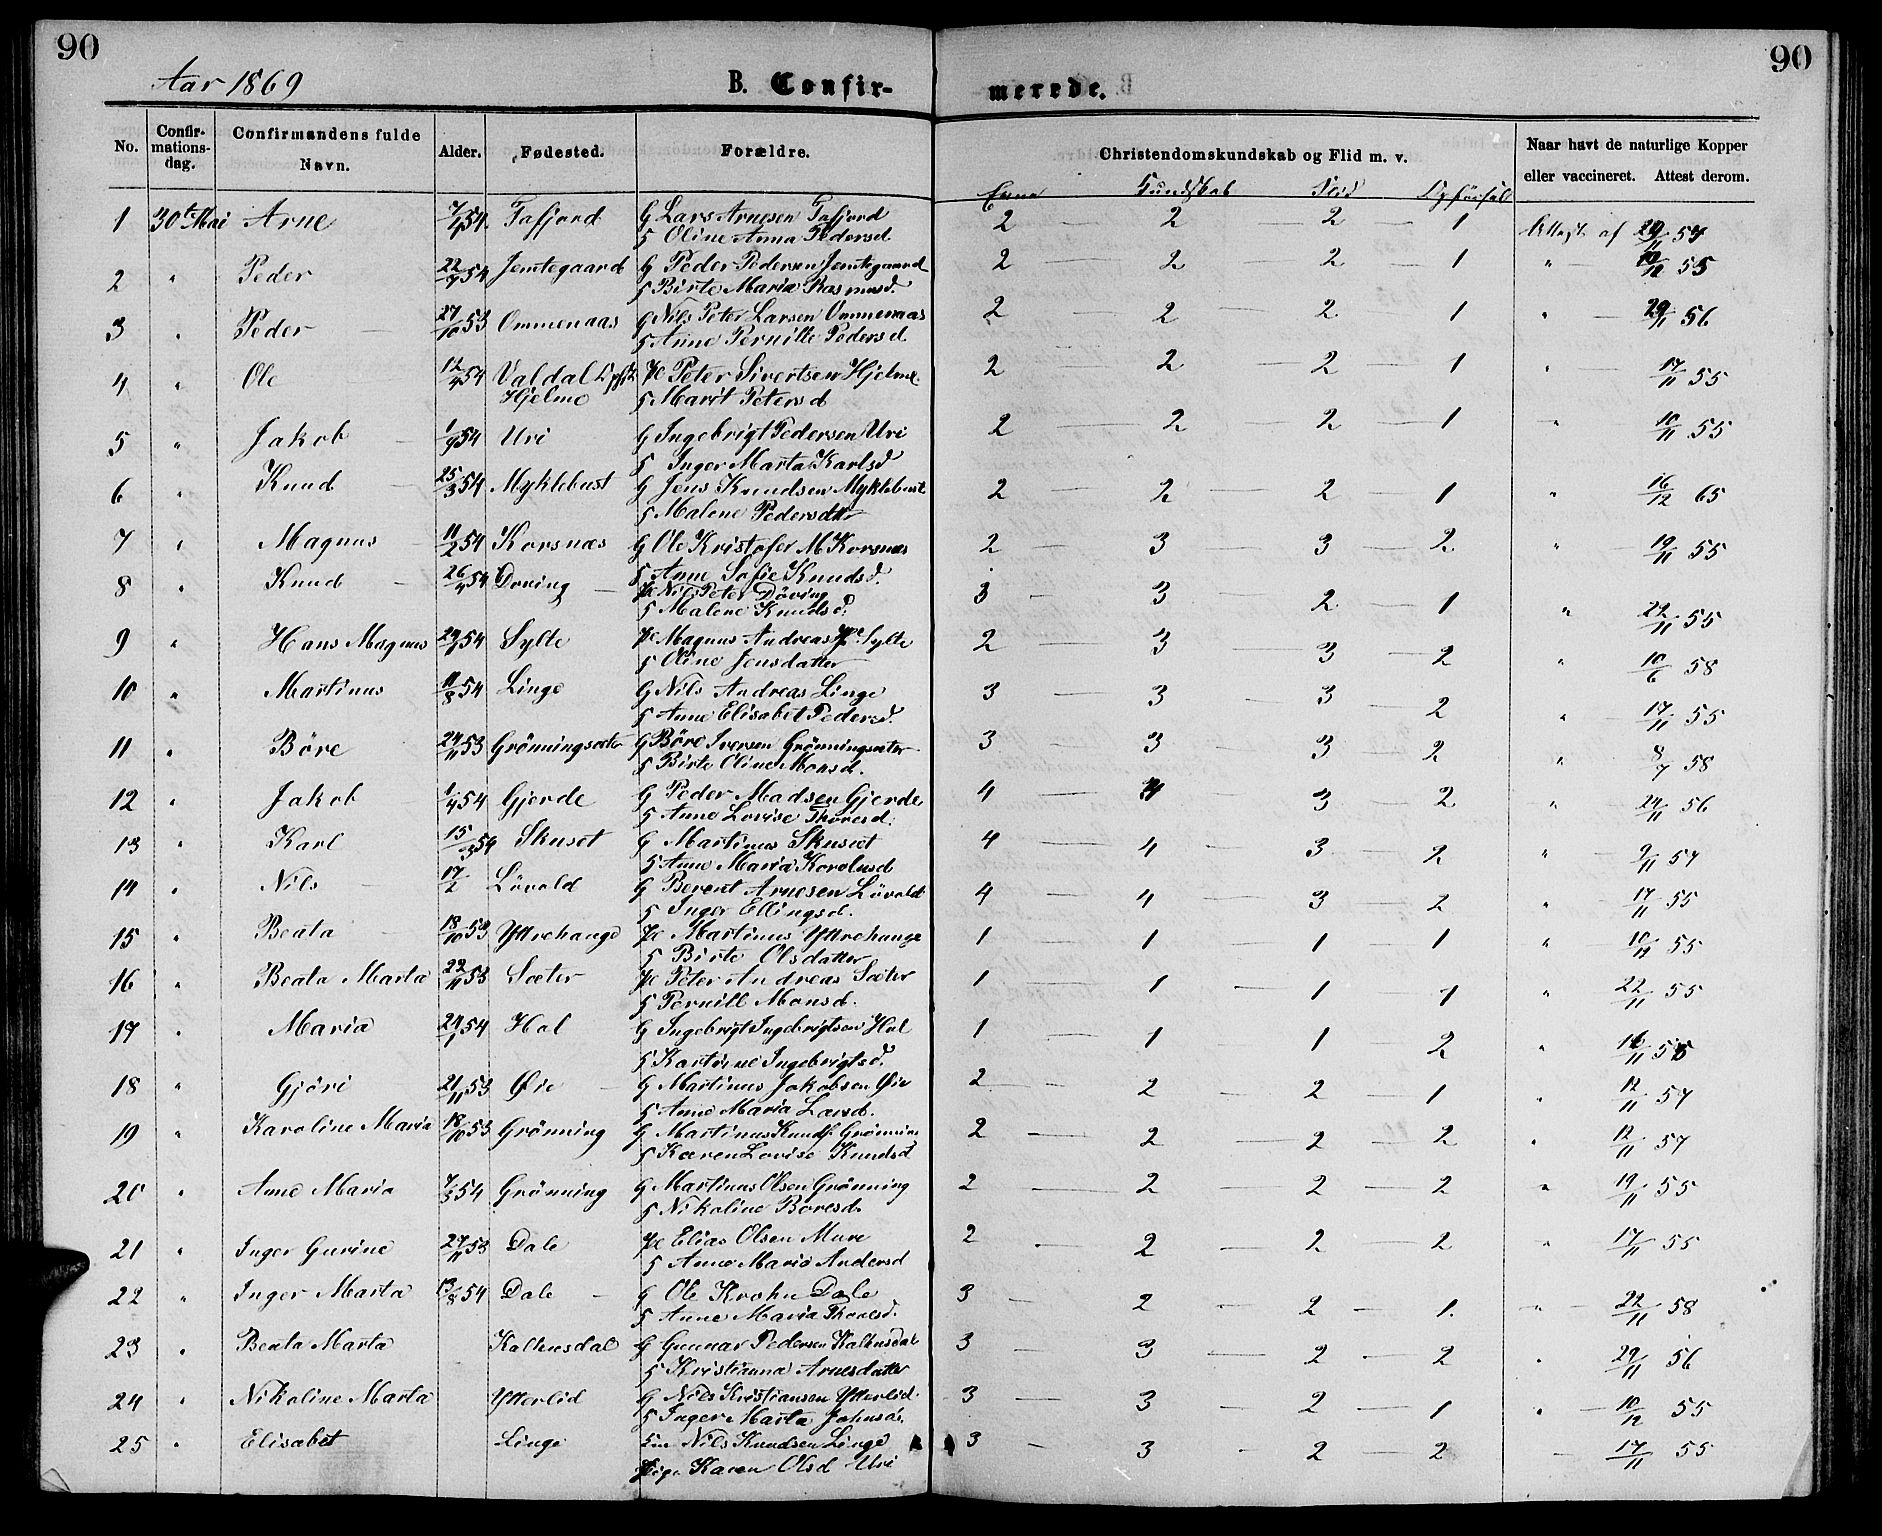 90
90
Aar 1869
B. Confir-
merede.
No.
Confir-
mations-
dag.
Confirmandens fulde
Navn.
Alder.
Fødested.
Forældre.
Christendomskundskab og Flid m. v.
Evne Kundskab Flid Opførsel
Naar havt de naturlige Kopper
eller vaccineret. Attest derom.
1 30te Mai Arne 7/1 54 Tafjord G Lars Arnesen Tafjord 2 2 2 1 Attest af 29/11 54
5 Oline Anna Pedersd
2 " Peder 22/9 54 Jemtegaard G Peder Pedersen Jemtegaard 2 2 2 1 " 10/12 55
5 Birte Maria Rasmusd.
3 " Peder 27/10 53 Ommenaas G Nils Peter Larsen Ommenaas 2 2 2 1 " 29/11 56
5 Anne Pernille Pedersd
4 " Ole 12/4 54 Valdal Peter Sivertsen Hjelme 2 2 2 1 " 17/11 55
Hjelme 5 Marit Petersd
5 " Jakob 1/9 54 Uri G Ingebrigt Pedersen Uri 2 2 2 1 " 10/11 55
5 Inger Marta Karlsd
6 " Knud 25/3 54 Myklebust G Jens Knudsen Myklebust 2 2 2 1 " 16/12 65
5 Malene Pedersdtter
7 " Magnus 11/2 54 Korsnæs G Ole Kristofer M Korsnæs 2 3 3 2 " 19/11 55
5 Anne Sofie Knudsd.
8 " Knud 26/4 54 Døving Nils Peter Döving 3 3 2 1 " 22/11 55
5 Malene Knudsd.
9 " Hans Magnus 54 Sylte Magnus Andreas Sylte 2 3 3 2 " 10/6 58
5 Oline Jensdatter
10 " Martinus 11/8 54 Linge G Nils Andreas Linge 3 3 3 2 " 17/11 55
5 Anne Elisabet Pedersd.
11 " Böre 24/11 53 Grönningsæter G Böre Iversen Grönningsæter 3 3 3 2 " 8/7 58
5 Birte Oline Monsd.
12 " Jakob 1/4 54 Gjerde G Peder Madsen Gjerde 4 4 3 2 " 24/11 56
5 Anne Lovise Thoresd.
13 " Karl 15/3 54 Skuset G Martinus Skuset 4 4 3 2 " 9/11 57
5 Anne Maria Korolusd
14 " Nils 17/2 Lövold G Berent Arnesen Lövold 4 4 3 2 " 17/11 55
5 Inger Ellingsd.
15 " Beata 18/10 53 Yttrehange Martinus Yttrehange 1 1 1 1 " 10/12 55
5 Birte Olsdatter
16 " Beata Marta 22/11 53 Sæter Peter Andreas Sæter 1 1 1 1 " 22/11 55
5 Pernill Monsd.
17 " Maria 24/1 54 Hol G Ingebrigt Ingebrigtsen Hol 1 1 1 2 " 16/11 55
5 Kartrine Ingebrigtsd.
18 " Gjöri 21/11 53 Øie G Martinus Jakobsen Øie 2 2 2 1 " 12/11 57
5 Anne Maria Larsd.
19 " Karoline Maria 18/10 53 Grönning G Martinus Knuds. Grönning 2 2 2 2 " 12/11 57
5 Karen Lovise Knudsd
20 " Anne Maria 7/3 54 Grönning G Martinus Olsen Grönning 2 2 2 2 " 19/11 55
5 Nikoline Boresd.
21 " Inger Gurine 27/11 53 Dale Elias Olsen Mure 2 2 2 2 " 17/11 55
5 Anne Maria Andersd
22 " Inger Marta 13/8 54 Dale G Ole Krohn Dale 3 2 2 1. " 22/11 58
5 Anne Maria Thoresd.
23 " Beata Marta Kaldhusdal G Gunnar Pedersen Kaldhusdal 3 3 2 2 " 29/11 56
5 Kristianna Arnesdatter
24 " Nikoline Marta Ytterlid G Nils Kristiansen Ytterlid. 3 3 2 1 " 10/12 55
5 Inger Marta Johnsd.
25 " Elisabet Linge Nils Knudsen Linge 3 3 2 2 17/11 55
Pige Karen Olsd Uri